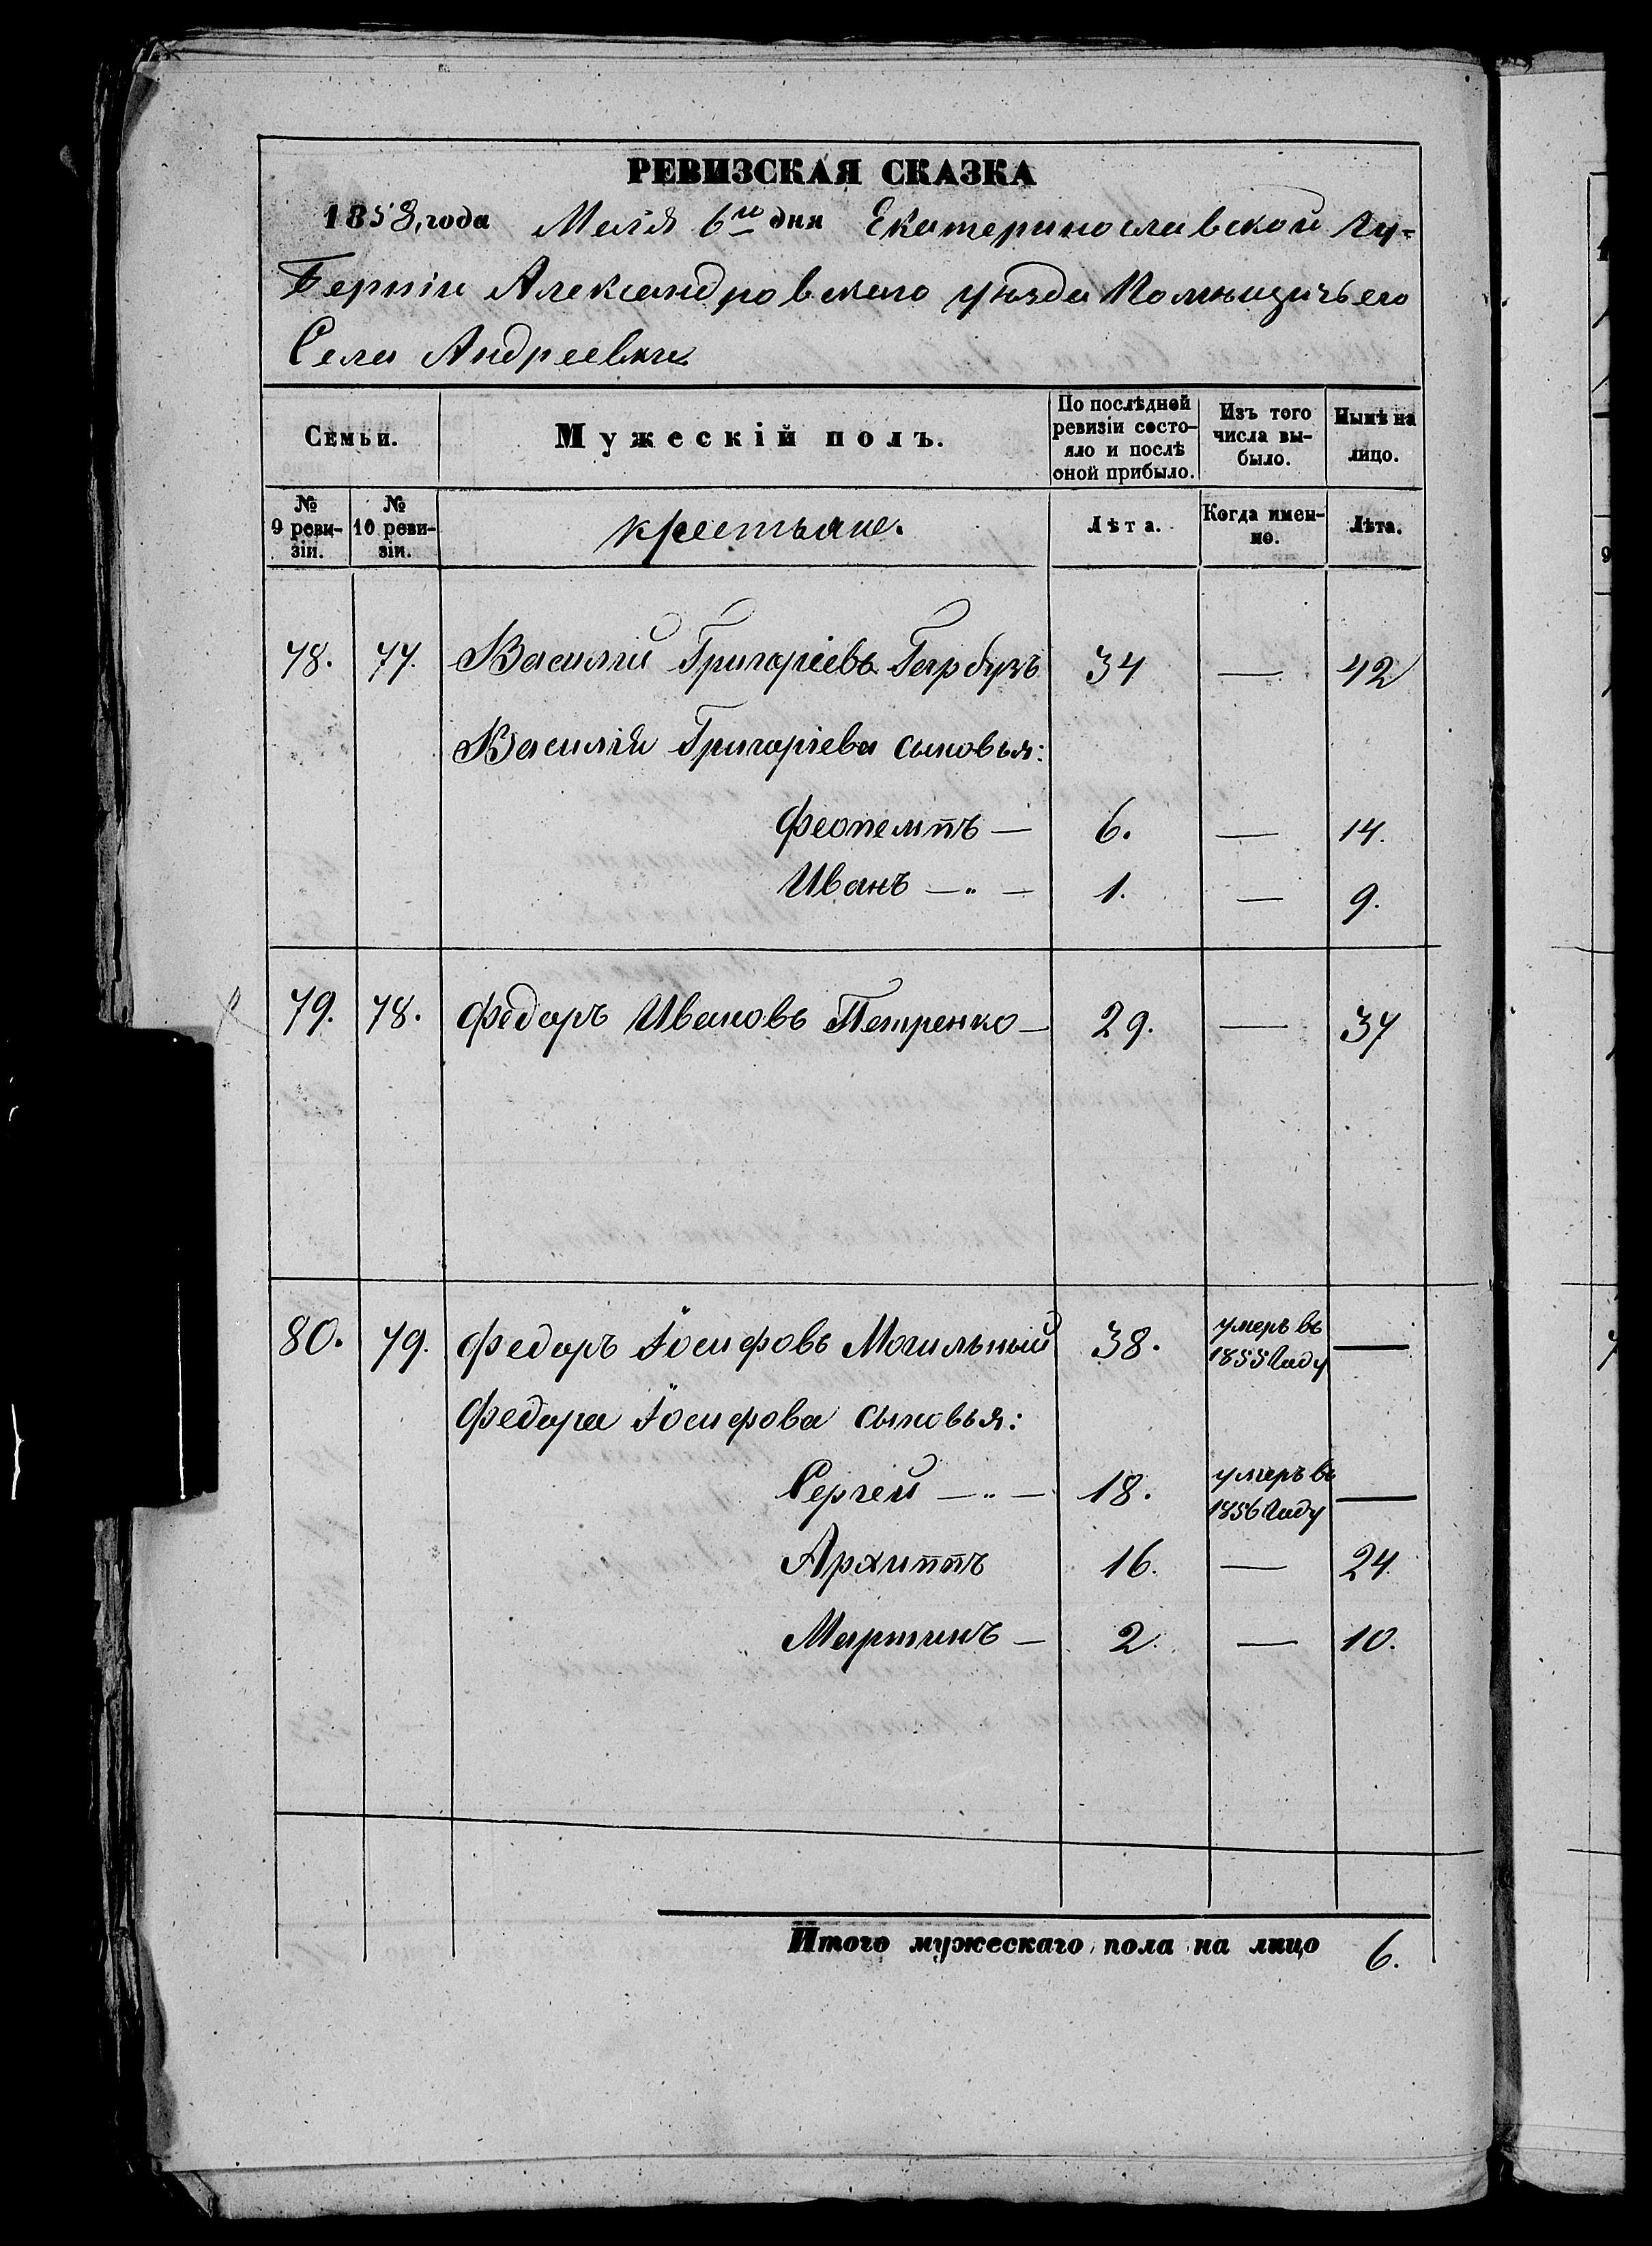 РЕВИЗСКАЯ СКАЗКА
1858, года Маія 6го дня Екатеринославской Гу-
берніи Александровскаго уѣзда Помѣщичьяго
Села Андреевки
Семьи.
Мужескій полъ.
По послѣдней ревизіи состо-
яло и послѣ оной прибыло.
Изъ того числа вы-
было.
Нынѣ на лицо.
№ 9 реви-
зіи.
№ 10 реви-
зіи.
крестьяне.
Лѣта.
Когда имен-
но.
Лѣта.
78. 77. Василій Григоріевъ Гарбузъ 34 — 42
Василія Григоріева сыновья:
Феопемптъ — 6. — 14.
Иванъ — „ — 1. — 9.
79. 78. Федоръ Ивановъ Петренко — 29. — 37
80. 79. Федоръ Іосифовъ Могильный 38. умеръ въ 1855 году —
Федора Іосифова сыновья:
Сергей — „ — 18. умеръ въ 1856 году —
Архиппъ 16. — 24.
Мартинъ — 2. — 10.
Итого мужескаго пола на лицо 6.